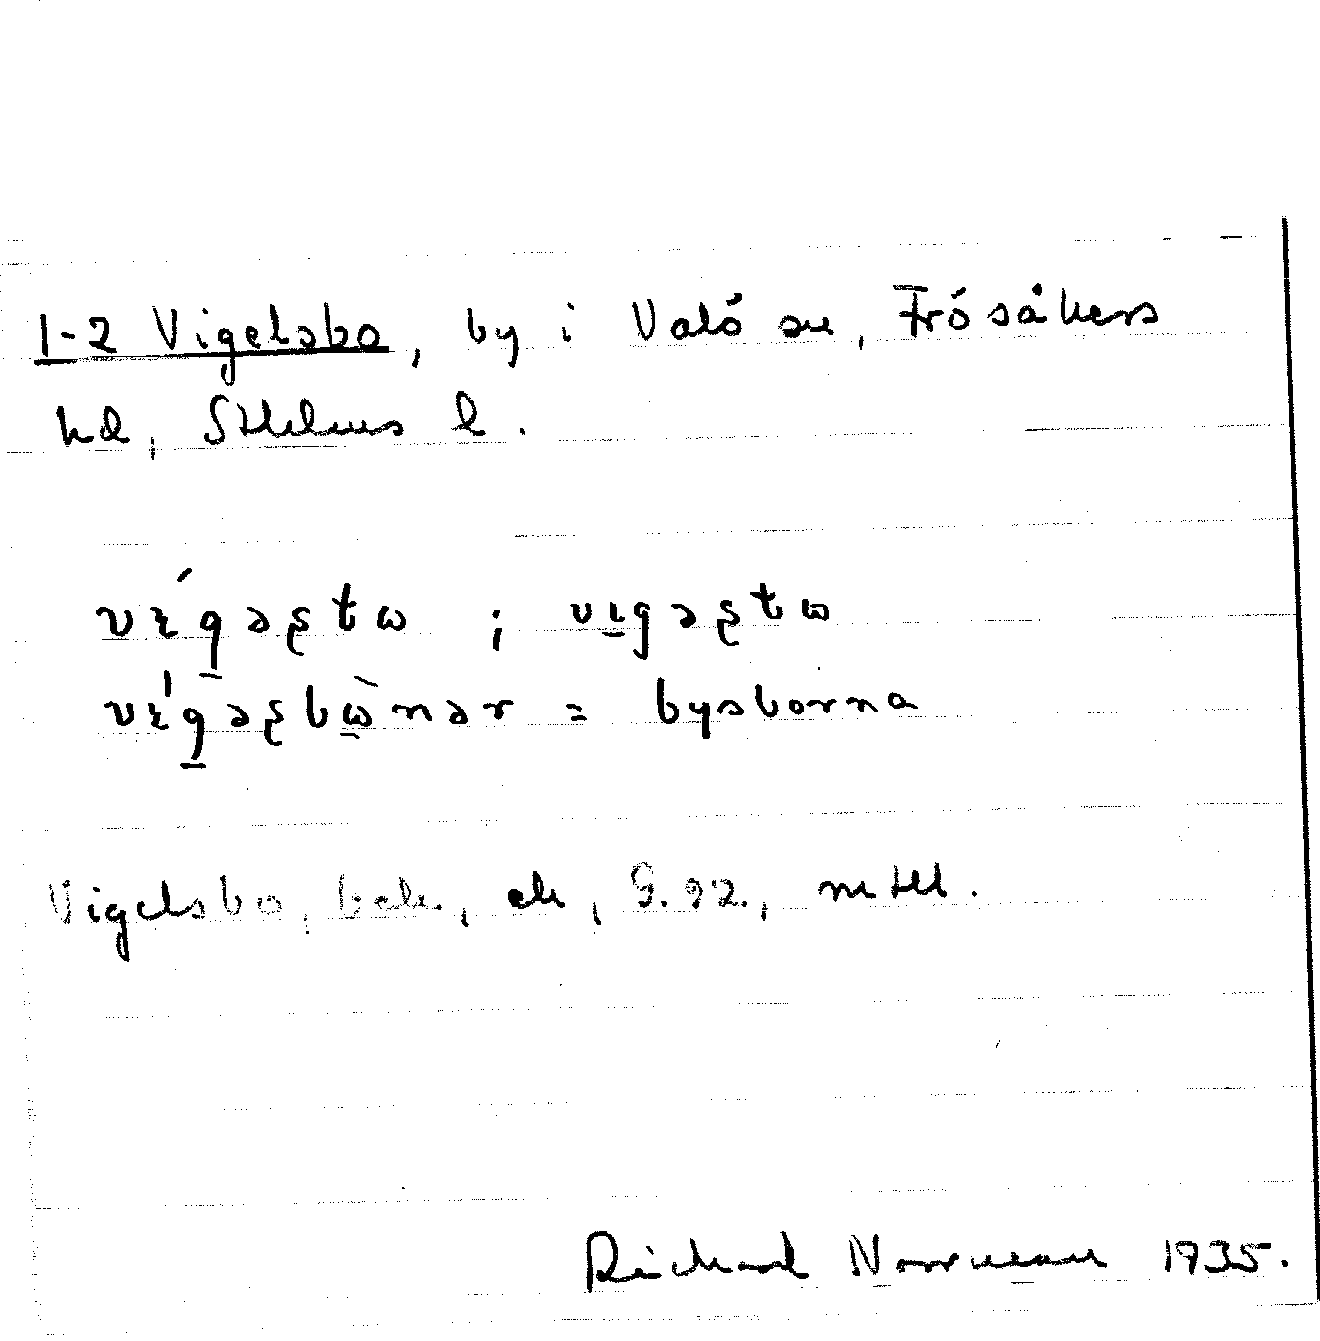 1-2 Vigelsbo, by i Valö sn, Frösåkers
hd, Sthlms l.
vɩ́gəʂtɷ ; vɩgəʂtɷ
vɩ́gəʂbɷ̀nər = bysborna
Vigelsbo, bek., ek, G.92., mtll.
Richard Norrman 1935.